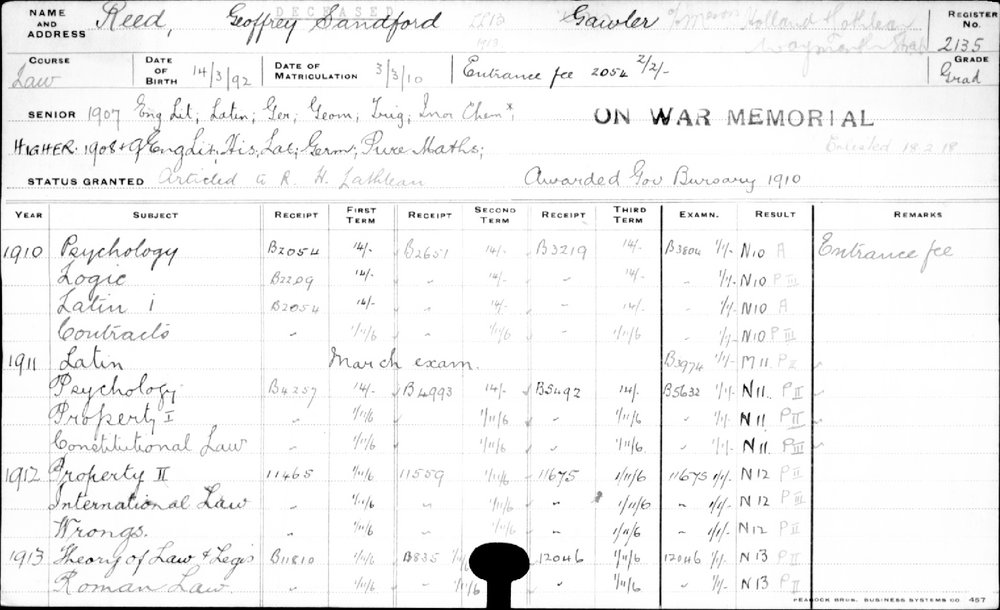 DECEASED
NAME AND ADDRESS Reed, Geoffrey Sandford Gawler REGISTER No. 2135
COURSE Law DATE OF BIRTH 14/3/92 DATE OF MATRICULATION 3/3/10 Entrance fee 2054 2/2/- GRADE Grad
SENIOR 1907 Eng Lit; Latin; Ger; Geom; Trig; Inor Chem*; ON WAR MEMORIAL
HIGHER 1908+9 Eng Lit; His; Lat; Germ; Pure Maths; Enlisted 18 2 18
STATUS GRANTED Articled to R. H. Lathlean Awarded Gov Bursary 1910
YEAR SUBJECT RECEIPT FIRST TERM RECEIPT SECOND TERM RECEIPT THIRD TERM EXAMN. RESULT REMARKS
1910 Psychology B2054 14/- B2651 14/- B3219 14/- B3804 1/1/- N10 A Entrance fee
Logic B2209 14/- " 14/- " 14/- " 1/1/- N10 P III
Latin i B2054 14/- " 14/- " 14/- " 1/1/- N10 A
Contracts " 1/11/6 " 1/11/6 " 1/11/6 " 1/1/- N10 P III
1911 Latin March exam. B3974 1/1/- M11 P
Psychology B4257 14/- B4993 14/- B5492 14/- B5632 1/1/- N11 P II
Property I " 1/11/6 " 1/11/6 " 1/11/6 " 1/1/- N11 P II
Constitutional Law " 1/11/6 " 1/11/6 " 1/11/6 " 1/1/- N11 P III
1912 Property II 11465 1/11/6 11559 1/11/6 11675 1/11/6 11675 1/1/- N12 P II
International Law " 1/11/6 " 1/11/6 " 1/11/6 " 1/1/- N12 P III
Wrongs. " 1/11/6 " 1/11/6 " 1/11/6 " 1/1/- N12 P II
1913 Theory of Law & Legis B11810 1/11/6 B835 12046 1/11/6 12046 1/1/- N13 P II
Roman Law " 1/11/6 1/11/6 " 1/11/6 " 1/1/- N13 P II
PEACOCK BROS. BUSINESS SYSTEMS CO. 457